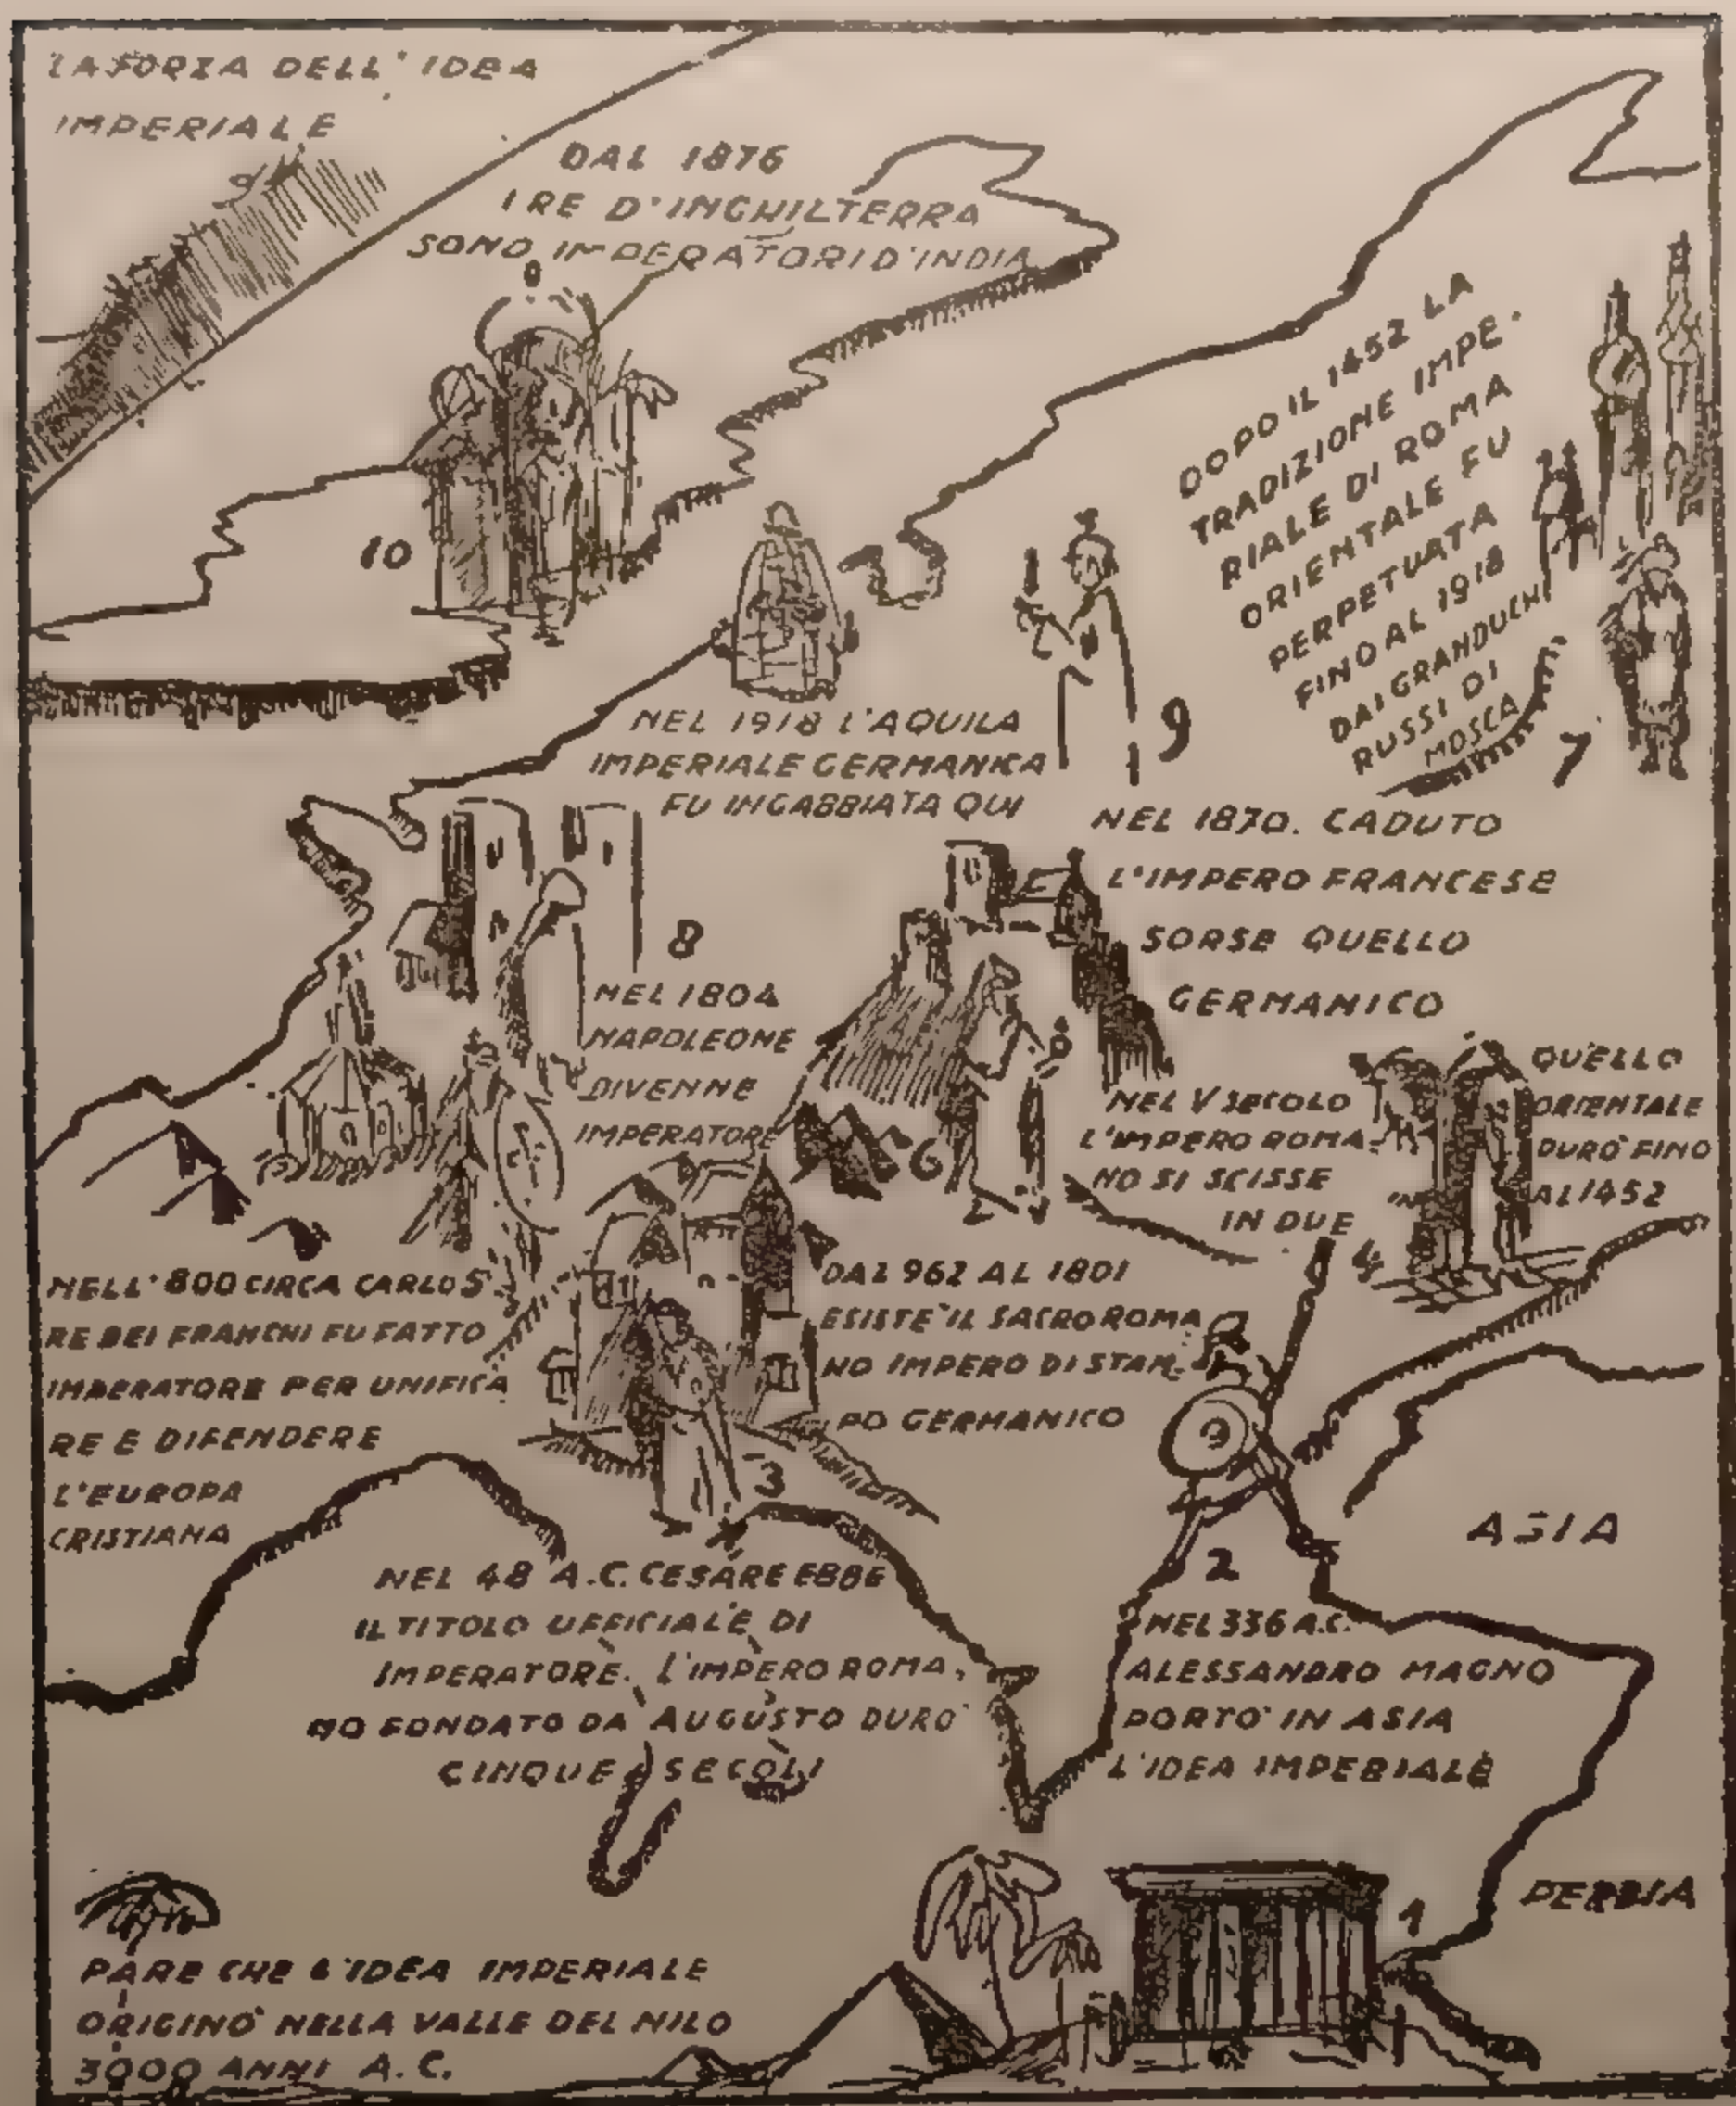 LA FORZA DELL'IDEA
IMPERIALE
DAL 1876
I RE D'INGHILTERRA
SONO IMPERATORI D'INDIA
10
DOPO IL 1452 LA
TRADIZIONE IMPE-
RIALE DI ROMA
ORIENTALE FU
PERPETUATA
FINO AL 1918
DAI GRANDUCHI
RUSSI DI
MOSCA
7
NEL 1918 L'AQUILA
IMPERIALE GERMANICA
FU INGABBIATA QUI
9
NEL 1870. CADUTO
L'IMPERO FRANCESE
SORSE QUELLO
GERMANICO
8
NEL 1804
NAPOLEONE
DIVENNE
IMPERATORE
6
NEL V SECOLO
L'IMPERO ROMA-
NO SI SCISSE
IN DUE
4
QUELLO
ORIENTALE
DURO' FINO
AL 1452
NELL'800 CIRCA CARLO 5
RE DEI FRANCHI FU FATTO
IMPERATORE PER UNIFICA
RE E DIFENDERE
L'EUROPA
CRISTIANA
DAL 962 AL 1801
ESISTE' IL SACRO ROMA
NO IMPERO DI STAM-
PO GERMANICO
3
NEL 48 A.C. CESARE EBBE
IL TITOLO UFFICIALE DI
IMPERATORE. L'IMPERO ROMA,
NO FONDATO DA AUGUSTO DURO'
CINQUE SECOLI
ASIA
2
NEL 336 A.C.
ALESSANDRO MAGNO
PORTO' IN ASIA
L'IDEA IMPERIALE
PERSIA
1
PARE CHE L'IDEA IMPERIALE
ORIGINO' NELLA VALLE DEL NILO
3000 ANNI A.C.